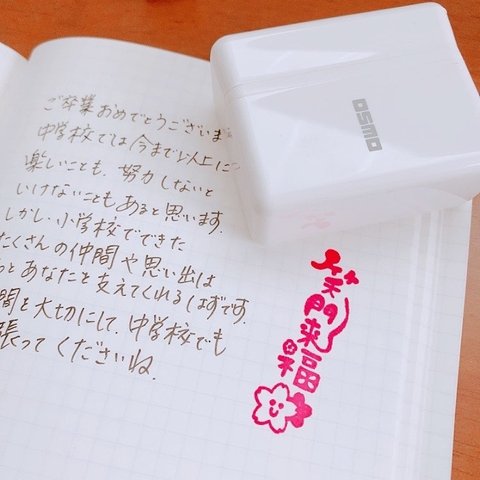 ご卒業おめでとうございま
中学校では今まで以上に
楽しいことも、努力しないと
いけないこともあると思います。
しかし小学校でできた
たくさんの仲間や思い出は
とあなたを支えてくれるはずです。
間を大切にして、中学校でも
張ってくださいね。
OSMO
笑門来福